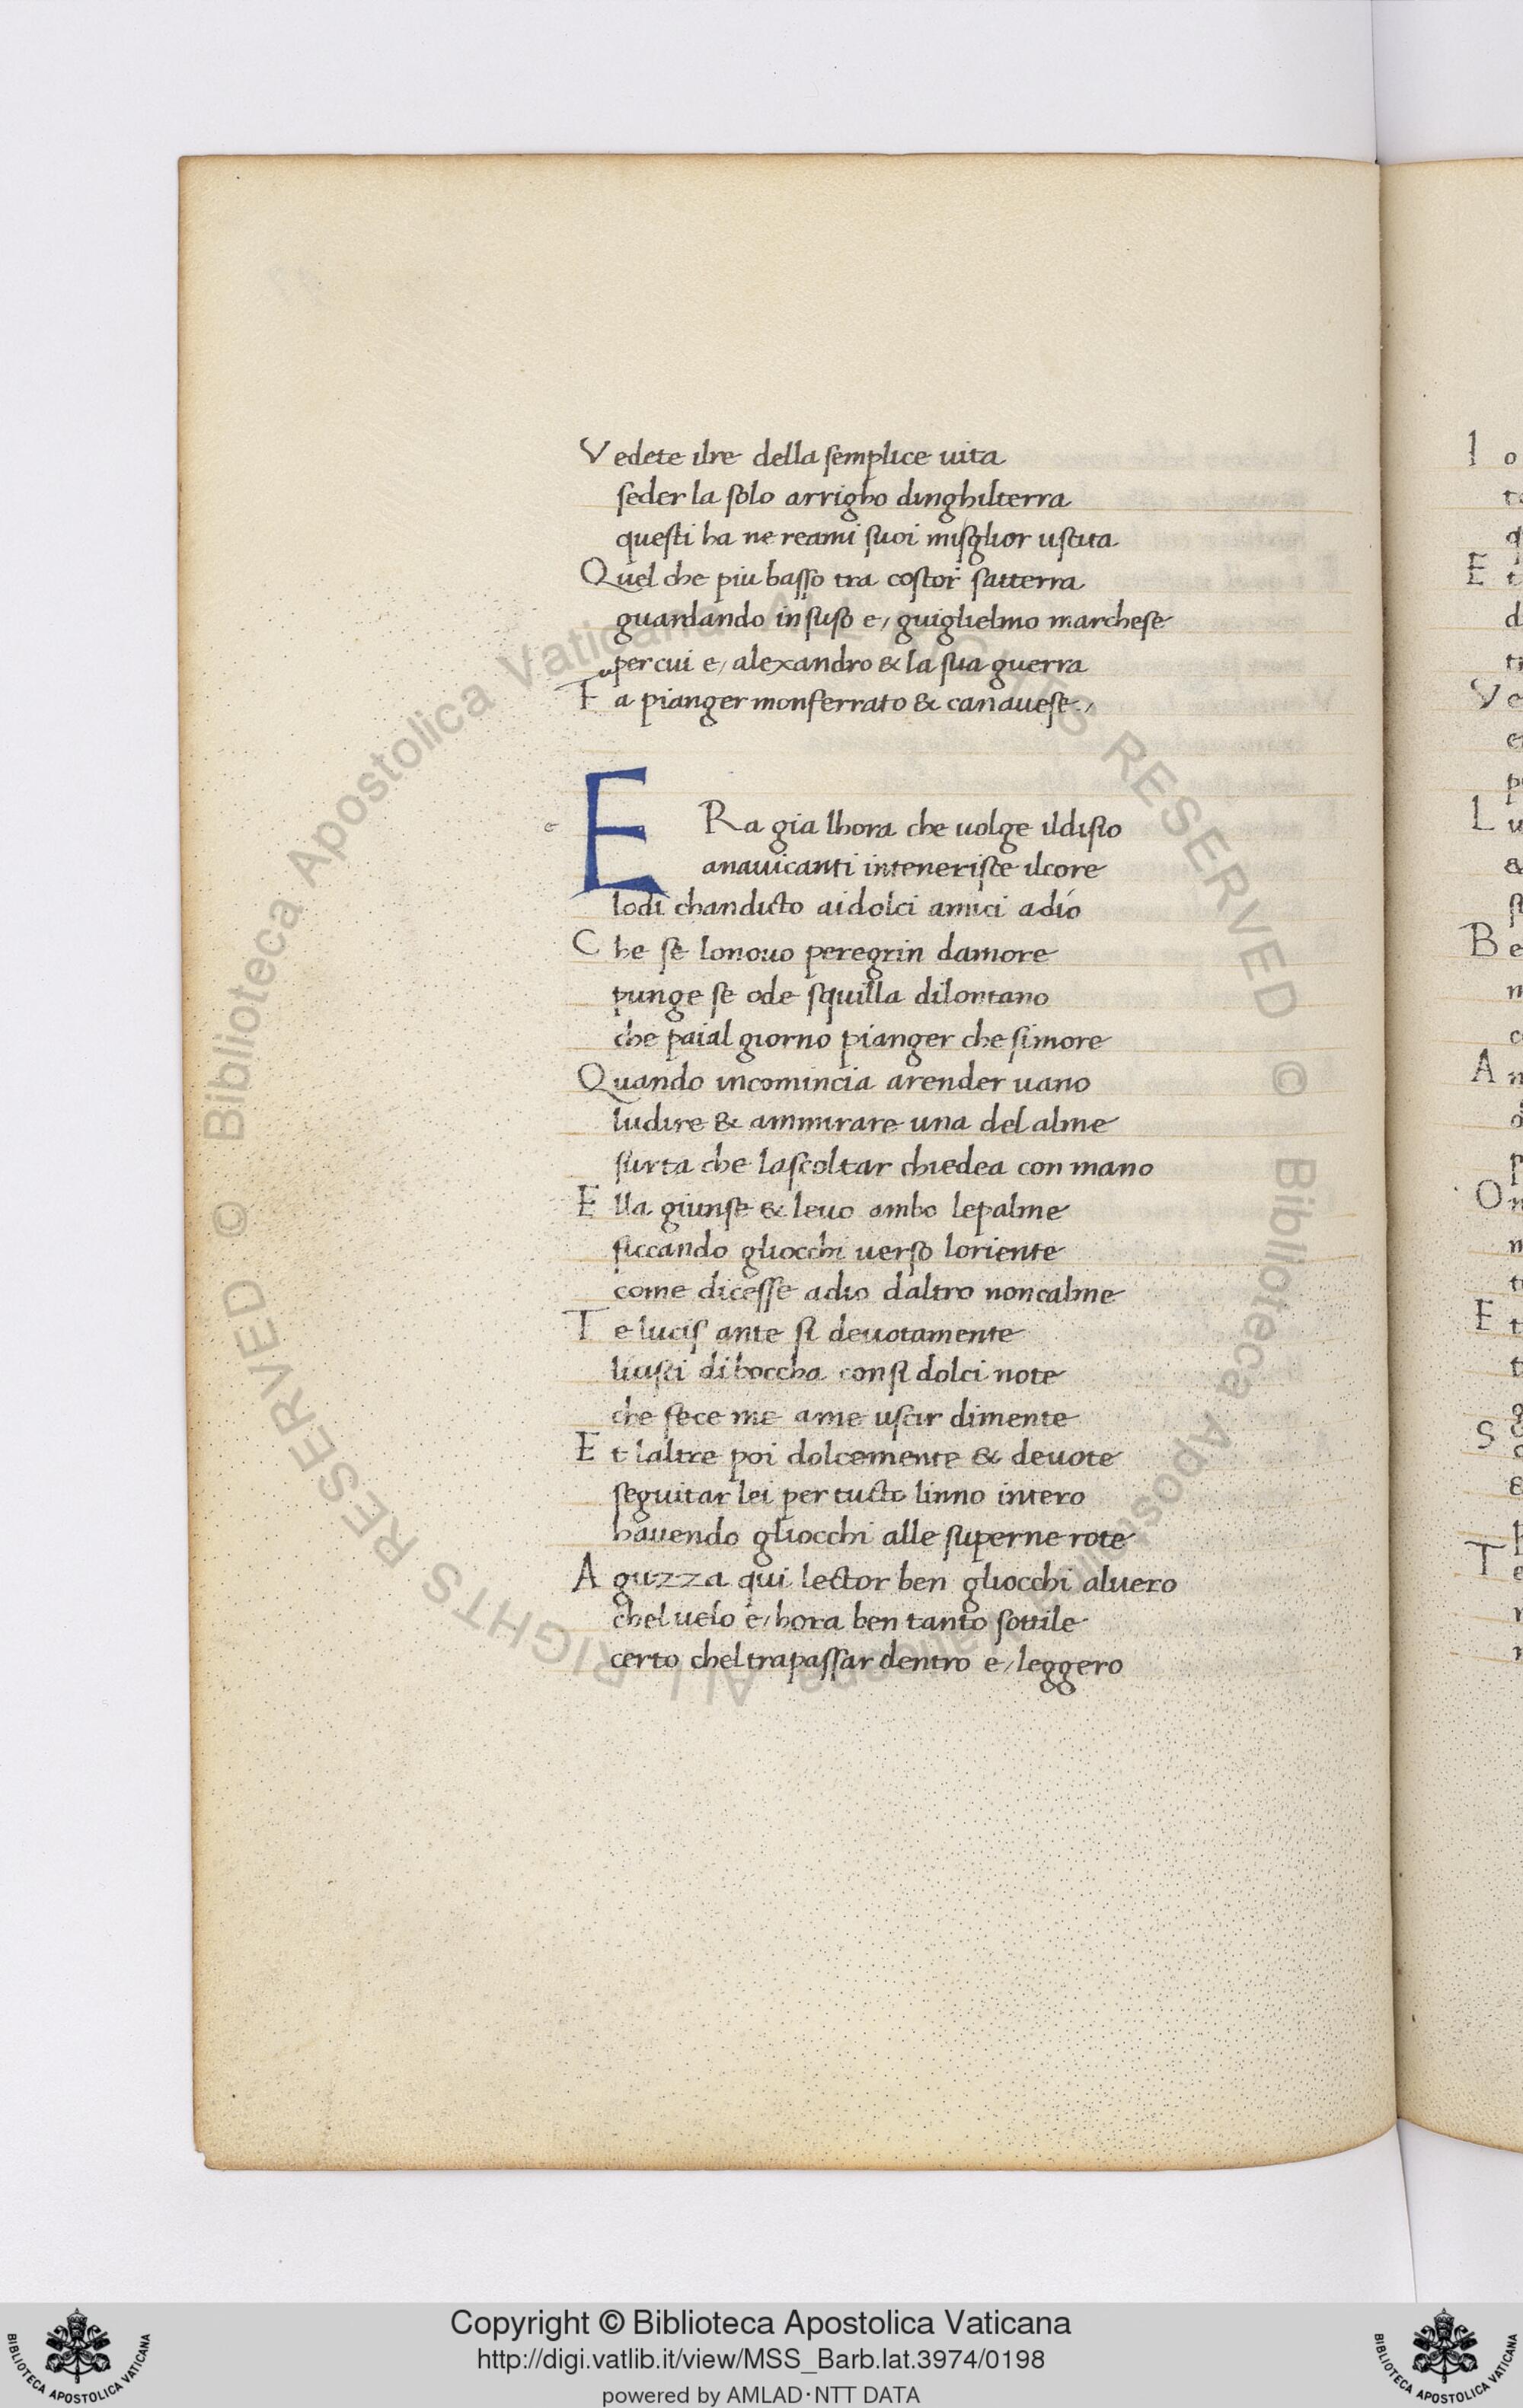 Vedete ilre della semplice uita
seder la solo arrigho dinghilterra
questi ha ne reami suoi misglior uscita
Quel che piu basso tra costor satterra
guardando in suso e/ guiglielmo marchese
per cui e/ alexandro & la sua guerra
Fa pianger monferrato & canauese/
e
ERa gia lhora che uolge ildisio
anauicanti intenerisce ilcore
lodi chandicto aidolci amici adio
Che se lonouo peregrin damore
punge se ode squilla dilontano
che paial giorno pianger che simore
Quando incomincia arender uano
ludire & ammirare una del alme
surta che lascoltar chiedea con mano
Ella giunse & leuo ambo lepalme
ficcando gliocchi uerso loriente
come dicesse adio daltro noncalme
Te lucis ante si deuotamente
liusci diboccha consi dolci note
che fece me ame uscir dimente
Et laltre poi dolcemente & deuote
seguitar lei per tucto linno intero
hauendo gliocchi alle superne rote
Aguzza qui lector ben gliocchi aluero
chel uelo e/ hora ben tanto sottile
certo cheltrapassar dentro e/ leggero
Copyright © Biblioteca Apostolica Vaticana
http://digi.vatlib.it/view/MSS_Barb.lat.3974/0198
powered by AMLAD·NTT DATA